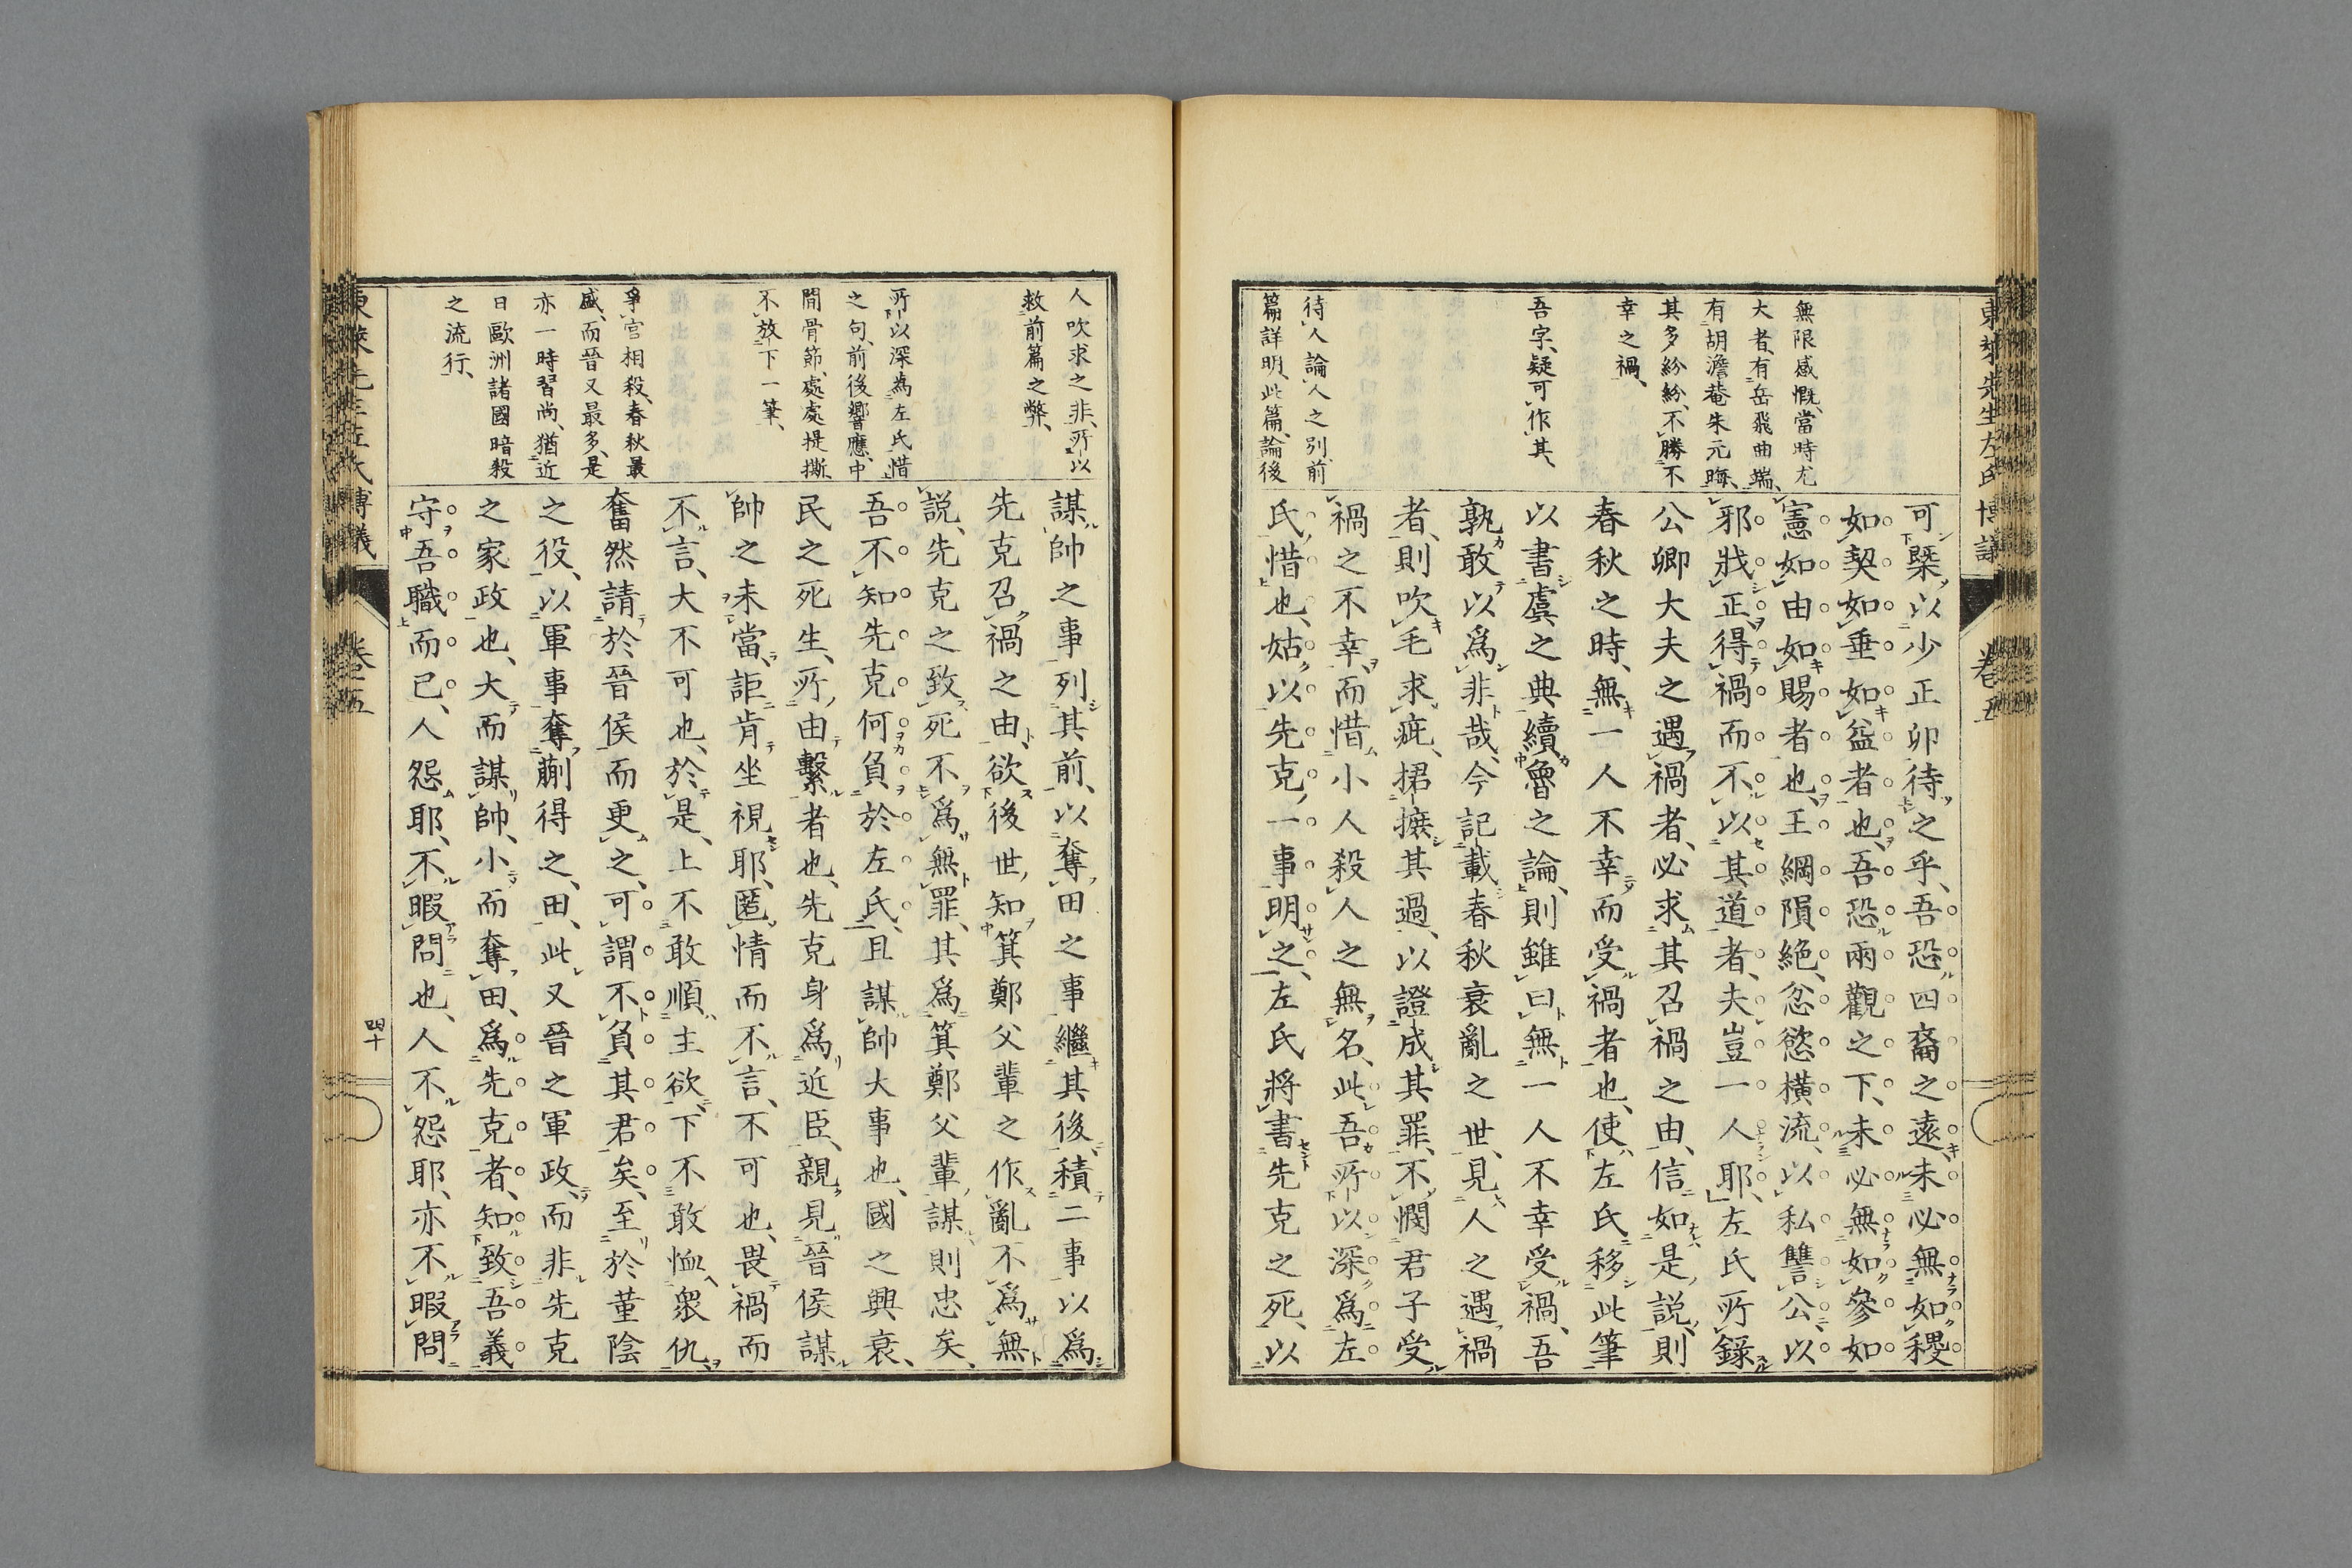 東萊先生左氏博議
卷五
無限感慨、當時尤
大者、有岳飛曲端、
有胡澹菴朱元晦、
其多紛紛、不勝不
幸之禍、
吾字、疑可作其、
待人論人之別、前
篇詳明、此篇論後
可槩以少正卯待之乎、吾恐四裔之遠、未必無如稷
如契如垂如益者也、吾恐兩觀之下、未必無如參如
憲如由如賜者也、王綱隕絕、忿慾橫流、以私讐公、以
邪戕正、得禍而不以其道者、夫豈一人耶、左氏所錄
公卿大夫之遇禍者、必求其召禍之由、信如是說、則
春秋之時、無一人不幸而受禍者也、使左氏移此筆
以書虞之典續魯之論、則雖曰無一人不幸受禍、吾
孰敢以爲非哉、今記載春秋衰亂之世、見人之遇禍
者、則吹毛求疵、捃摭其過、以證成其罪、不憫君子受
禍之不幸、而惜小人殺人之無名、此吾所以深爲左
氏惜也、姑以先克一事明之、左氏將書先克之死、以
人吹求之非、所以
救前篇之弊、
所以深爲左氏惜
之句、前後響應、中
間骨節、處處提撕、
不放下一筆、
爭官相殺、春秋最
盛、而晉又最多、是
亦一時習尚、猶近
日歐洲諸國暗殺
之流行、
謀帥之事列其前、以奪田之事繼其後、積二事以爲
先克召禍之由、欲後世知箕鄭父輩之作亂不爲無
說、先克之致死不爲無罪、其爲箕鄭父輩謀則忠矣、
吾不知先克何負於左氏、且謀帥大事也、國之興衰、
民之死生、所由繫者也、先克身爲近臣、親見晉侯謀
帥之未當、詎肯坐視耶、匿情而不言、不可也、畏禍而
不言、大不可也、於是、上不敢順主欲、下不敢恤衆仇、
奮然請於晉侯而更之、可謂不負其君矣、至於堇陰
之役、以軍事奪蒯得之田、此又晉之軍政、而非先克
之家政也、大而謀帥、小而奪田、爲先克者、知致吾義
守吾職而已、人怨耶、不暇問也、人不怨耶、亦不暇問
東萊先生左氏博議
卷五
四十